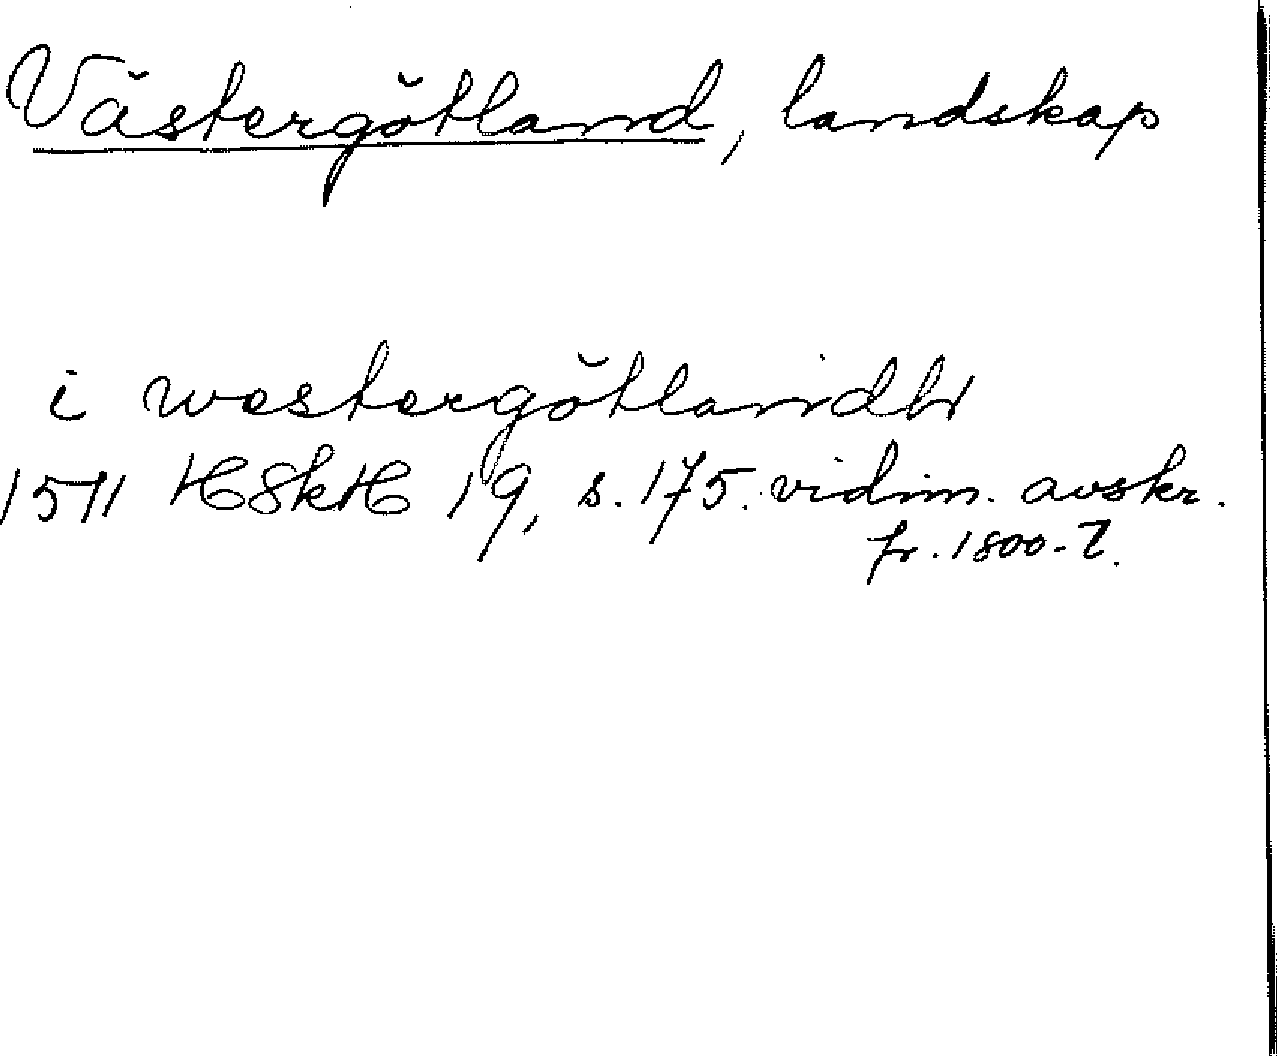 Västergötland, landskap
i westergötlandh
1571 HSkH 19, s. 175. vidim. avskr.
fr. 1800-t.